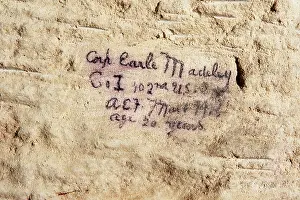 Corp Earle Madeley
Co I 102nd U.S.
AEF
age 20 years